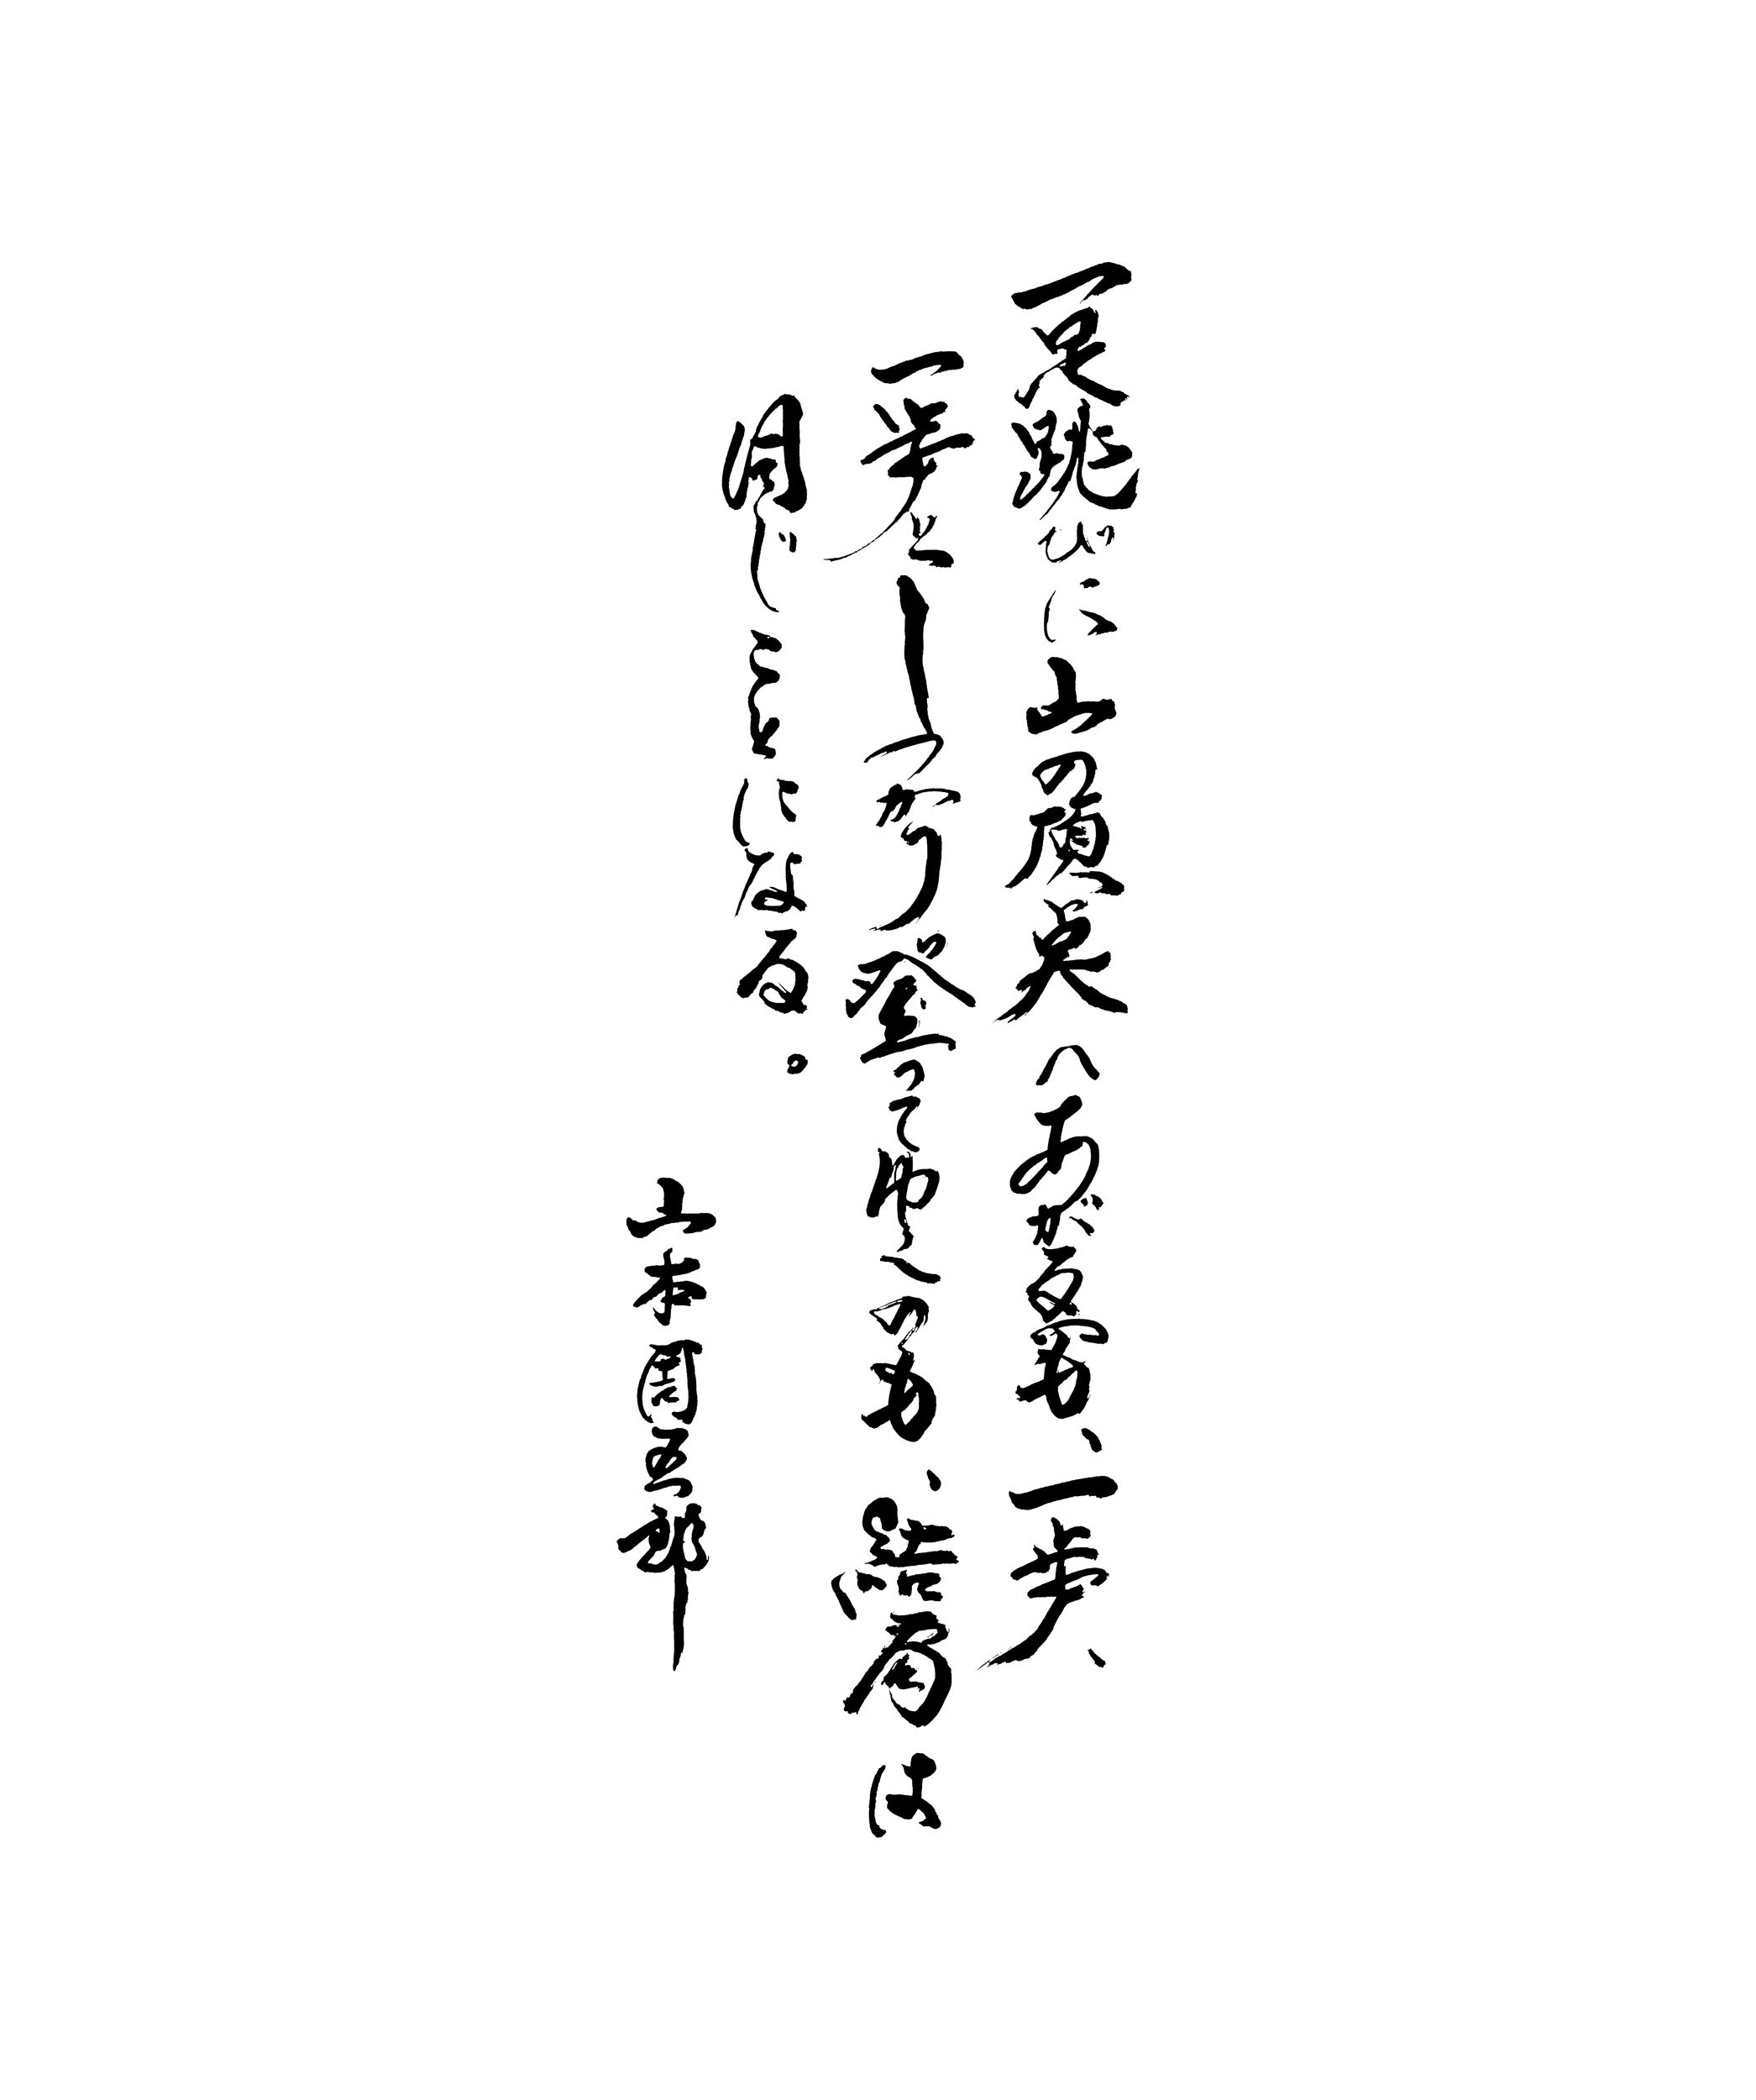 一足跳びに山の頂点へあがるも、一歩、
一歩としつかり登つてゆくのも、結局は
同じことになる。
山本周五郎